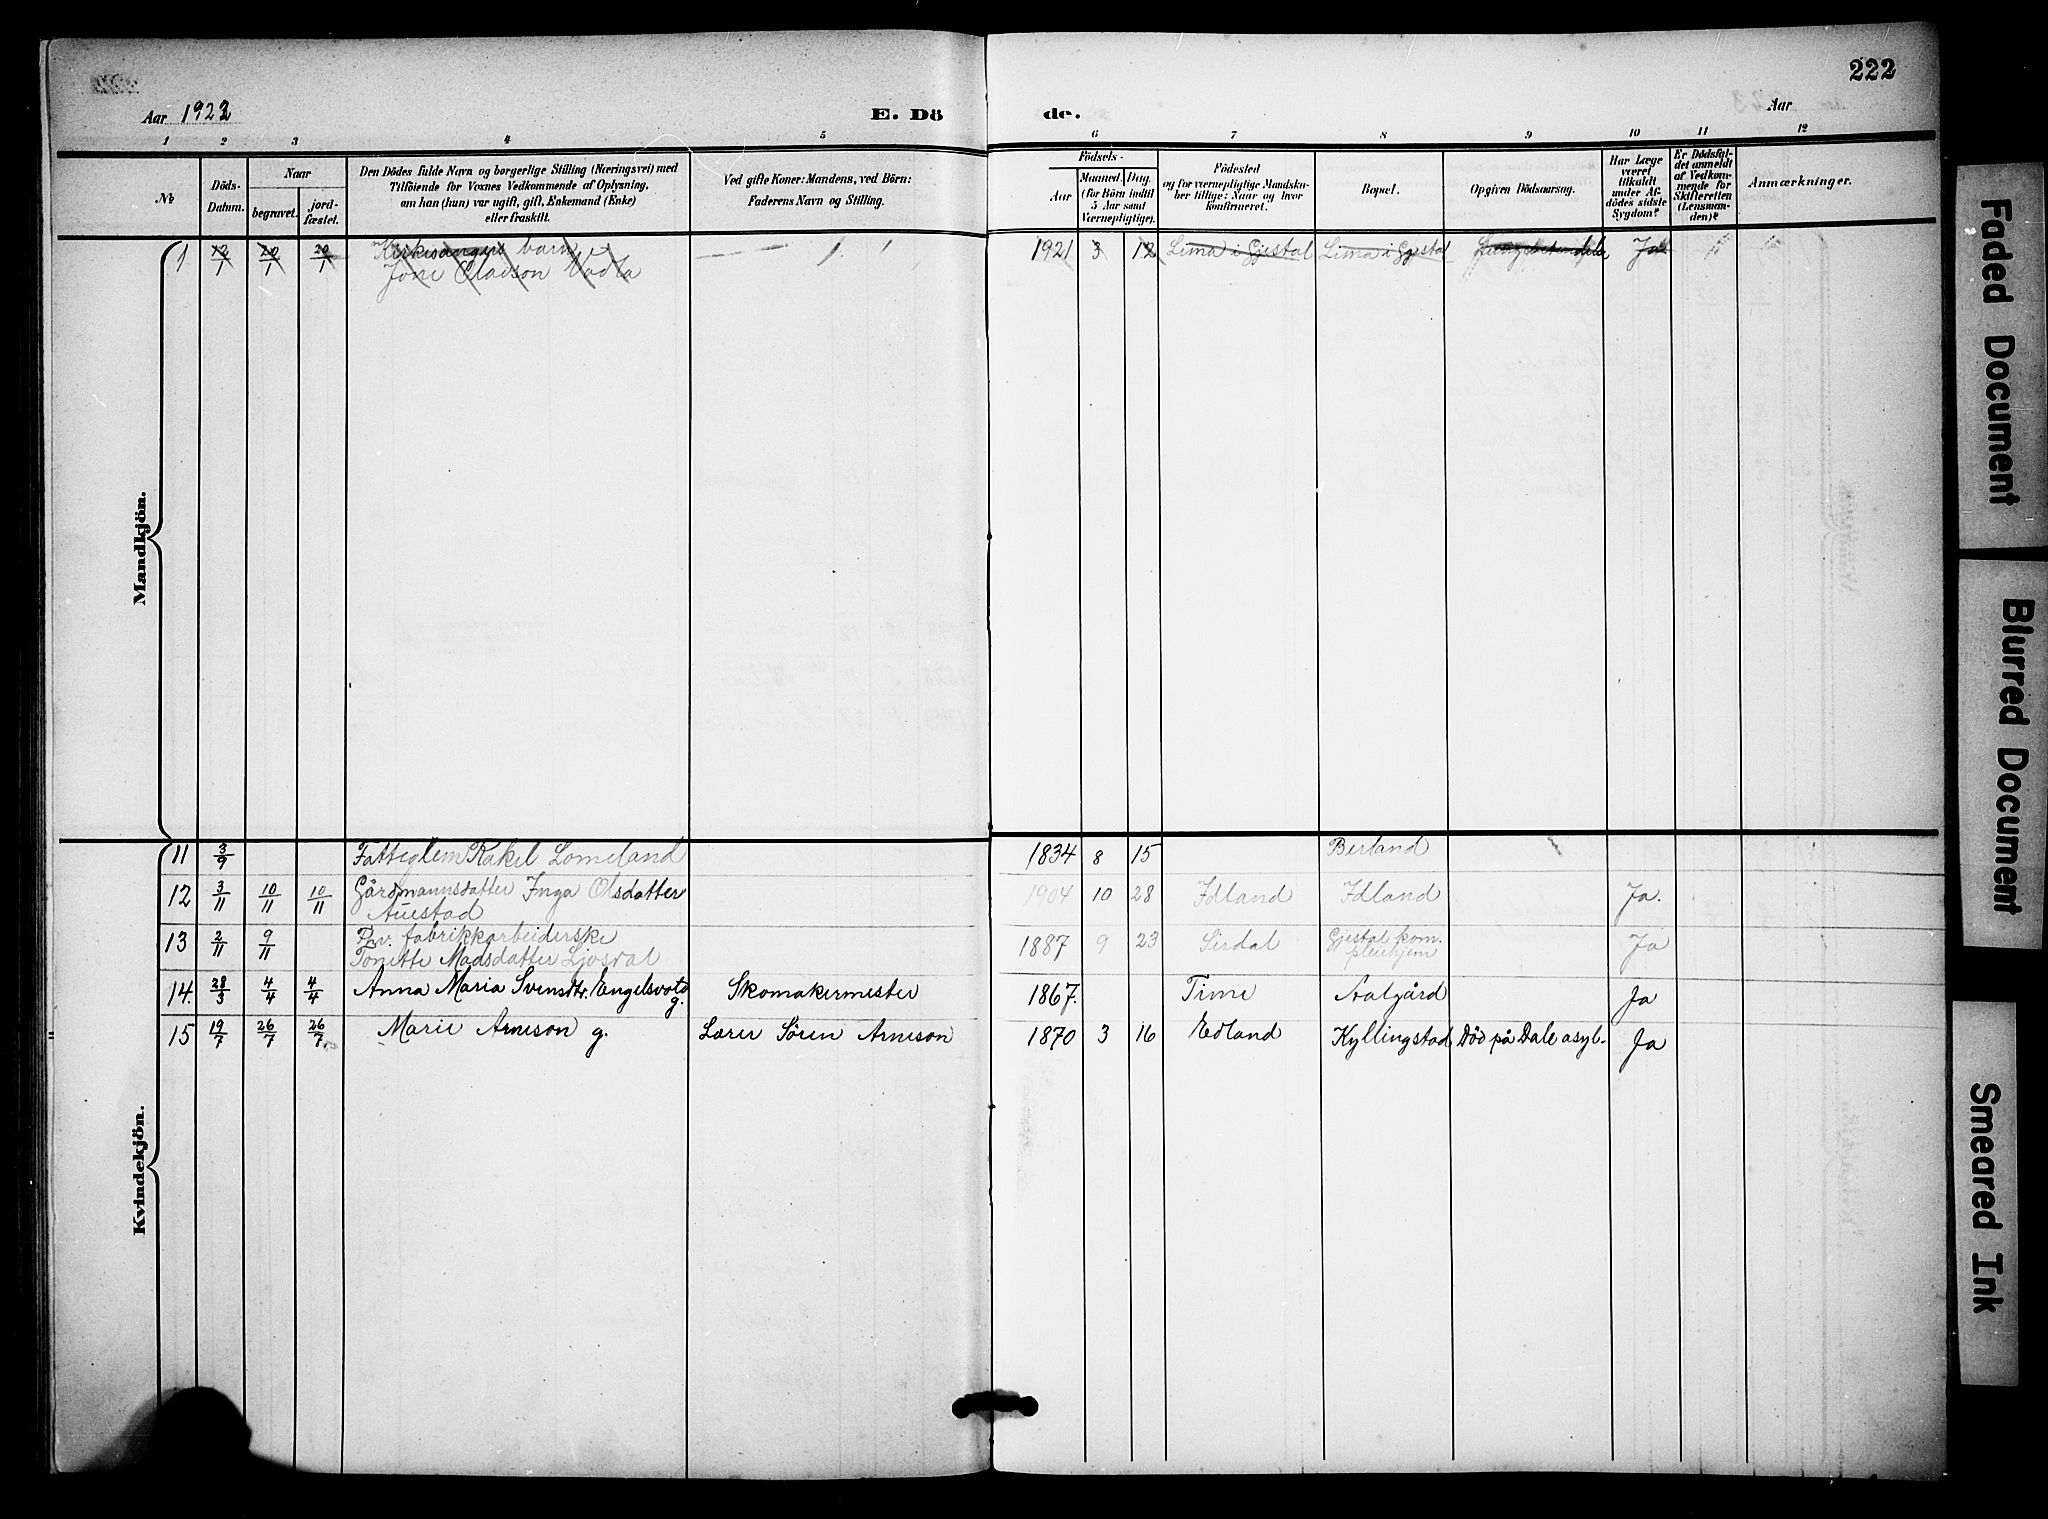 222
Aar 1922
E. Dö
de.
Aar
1 2 3 4 5 6 7 8 9 10 11 12
No
Döds-
Datum.
Naar
begravet.
jord-
fæstet.
Den Dödes fulde Navn og borgerlige Stilling (Næringsvei) med
Tilföiende for Voxnes Vedkommende af Oplysning,
om han (hun) var ugift, gift, Enkemand (Enke)
eller fraskilt.
Ved gifte Koner: Mandens, ved Börn:
Faderens Navn og Stilling.
Födsels-
Aar
Maaned. Dag.
(for Börn indtil
5 Aar samt
Værnepligtige).
Födested
og for værnepligtige Mandska-
ber tillige: Naar og hvor
konfirmeret.
Bopæl.
Opgiven Dödsaarsag.
Har Læge
været
tilkaldt
under Af-
dödes sidste
Sygdom?
Er Dödsfal-
det anmeldt
af Vedkom-
mende for
Skifteretten
(Lensman-
den)?
Anmærkninger.
Mandkjön.
1 12/1 20/1 20/1 Kirkesangers barn 1921 3 12 Lima i Gjestal Lima i Gjestal Ja
Jone Olavson Vadla
Kvindekjön.
11 3/9 Fattiglem Rakel Lomeland 1834 8 15 Berland
12 3/11 10/11 10/11 Gårdmannsdatter Inga Olsdatter 1904 10 28 Idland Idland Ja.
Auestad
13 2/11 9/11 Fhv. fabrikkarbeiderske 1887 9 23 Sirdal Gjestal kom. Ja
Tonette Madsdatter Ljosdal pleiehjem
14. 28/3 4/4 4/4 Anna Maria Svensdtr. Engelsvold g. Skomakermester 1867. Time Aalgård Ja
15 19/7 26/7 26/7 Marie Arneson g. Lærer Sören Arneson 1870 3 16 Edland Kyllingstad Död på Dale asyl. Ja
Faded Document
Blurred Document
Smeared Ink